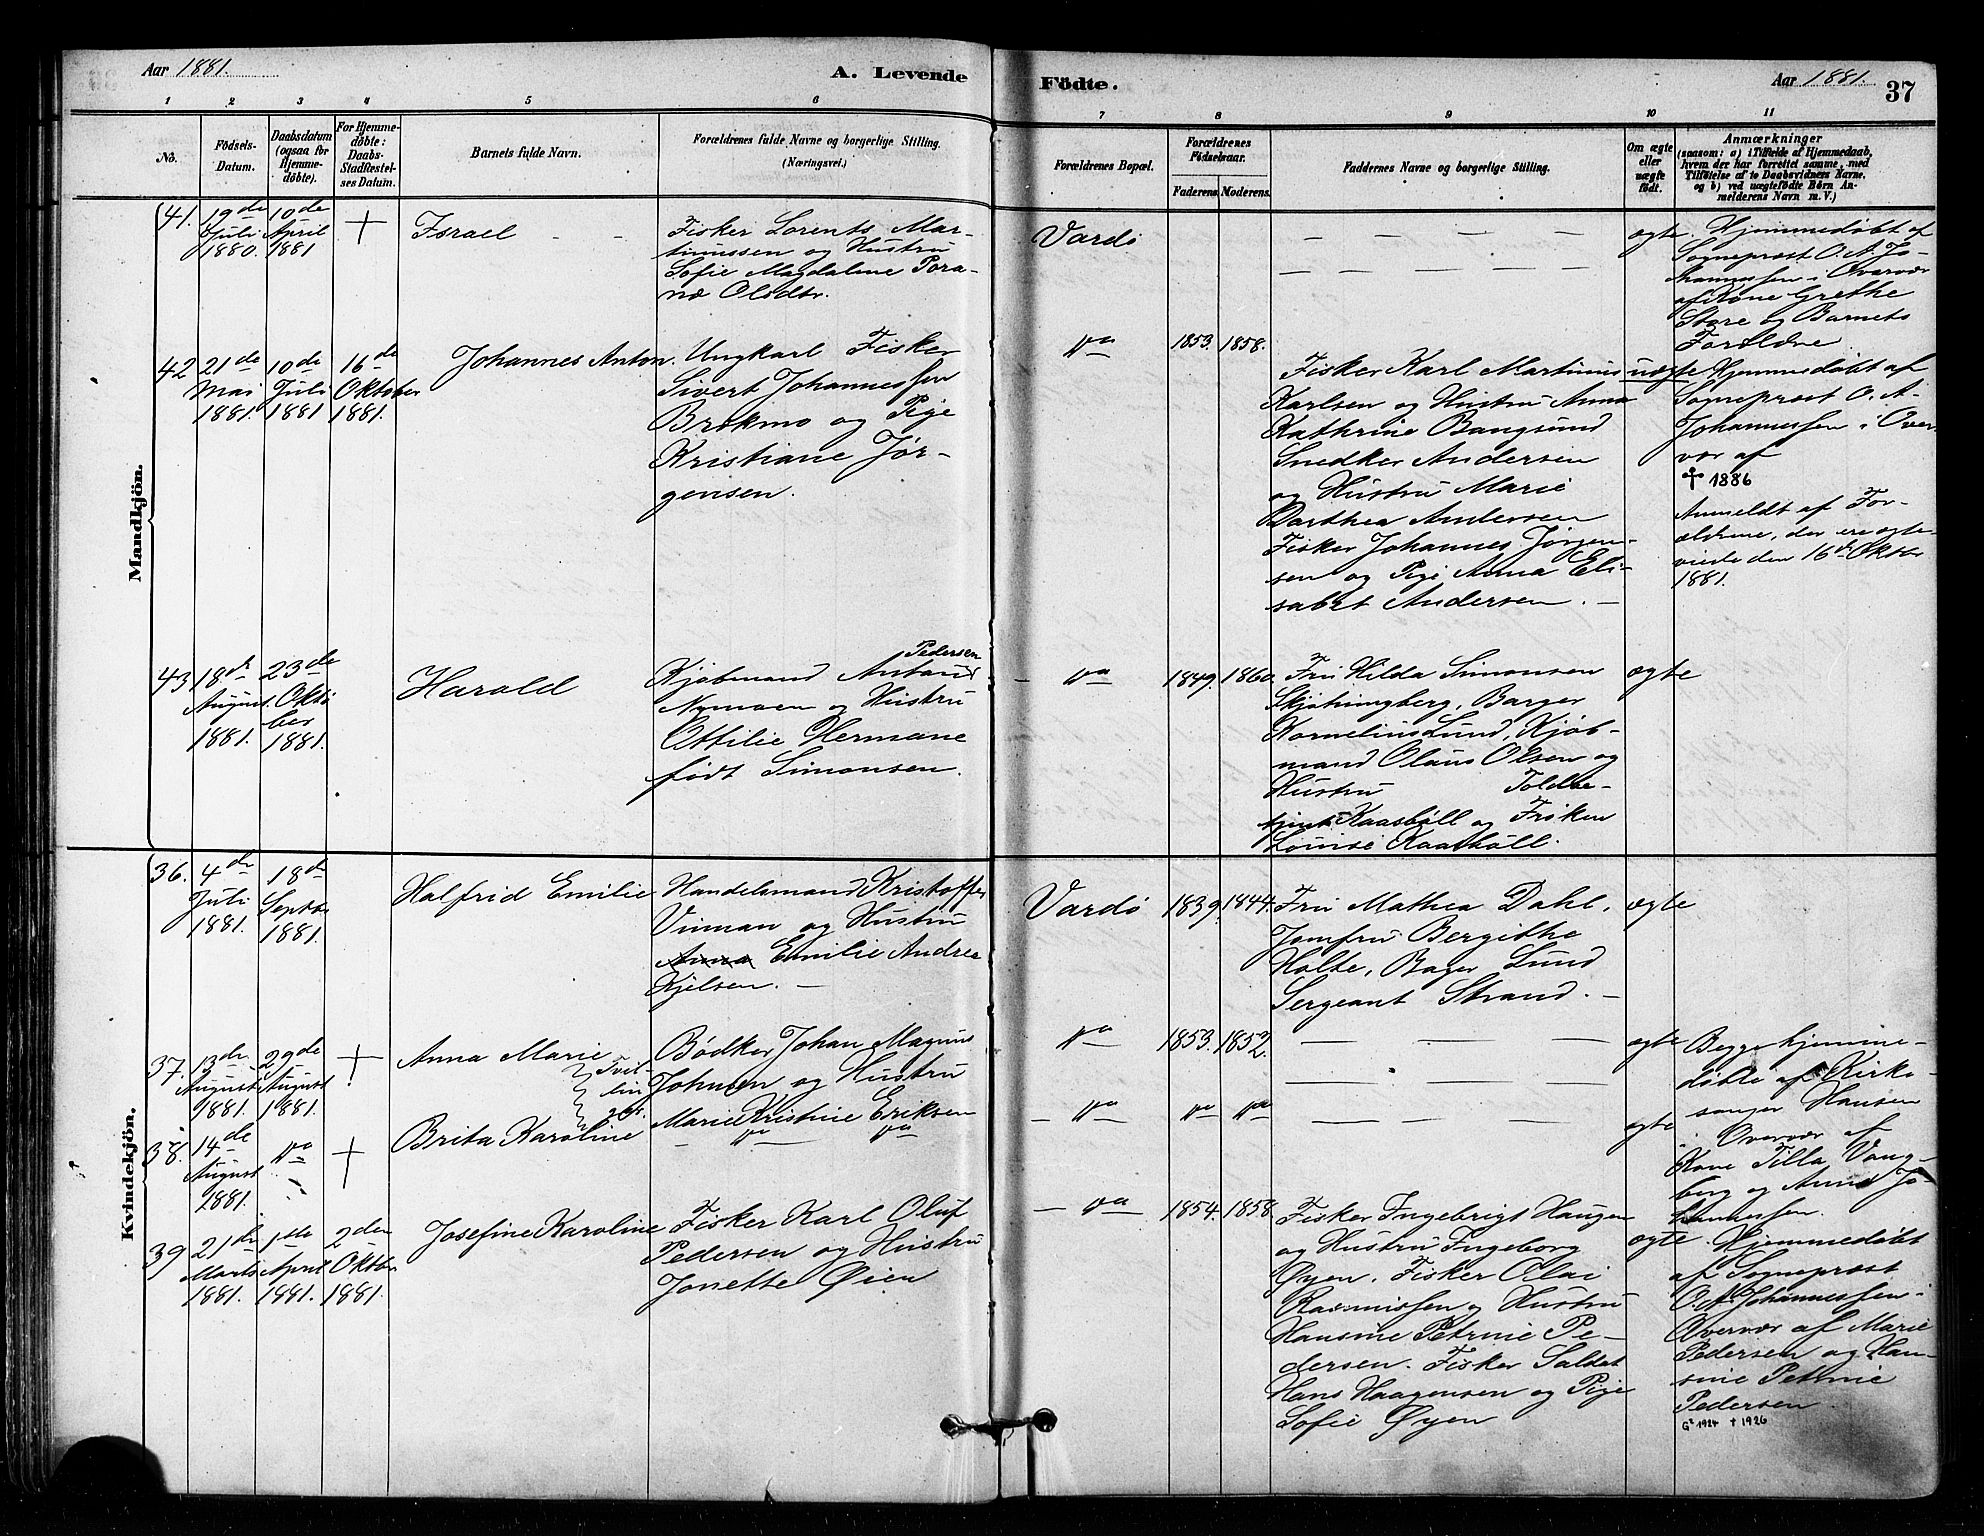 Aar 1881.
A. Levende
Födte.
Aar 1881.
37
1 2 3 4 5 6 7 8 9 10 11
No.
Födsels-
Datum.
Daabsdatum
(ogsaa for
Hjemme-
døbte).
For Hjemme-
døbte:
Daabs-
Stadfæstel-
ses Datum.
Barnets fulde Navn.
Forældrenes fulde Navne og borgerlige Stilling.
(Næringsvei.)
Forældrenes Bopæl.
Forældrenes
Födselsaar.
Faderens. Moderens.
Faddernes Navne og borgerlige Stilling.
Om ægte
eller
uægte
födt.
Anmærkninger
(saasom: a) i Tilfælde af Hjemmedaab,
hvem der har forrettet samme, med
Tilföielse af to Daabsvidners Navne,
og b) ved uægtefödte Börn An-
melderens Navn m. V.)
Mandkjön.
41.
19de
Juli
1880.
10de
April
1881
+
Israel
Fisker Lorents Mar-
tinussen og Hustru
Sofie Magdalene Pora-
næ Olsdtr.
Vardö
ægte.
Hjemmedøbt af
Sogneprest O. A. Jo-
hannessen i Overvær
af Kone Grethe
Store og Barnets
Forældre
42
21de
Mai
1881.
10de
Juli
1881
16de
Oktober
1881.
Johannes Anton.
Ungkarl Fisker
Sivert Johannessen
Brekmo og Pige
Kristiane Jør-
gensen.
"a
1853. 1858.
Fisker Karl Martinus
Karlsen og Hustru Anna
Kathrine Bangsund
Snedker Andersen
og Hustru Marie
Dorthea Andersen
Fisker Johannes Jørgen-
sen og Pige Anna Eli-
sabet Andersen.
uægte
Hjemmedøbt af
Sogneprest O. A.
Johannessen i Over-
vær af
† 1886
Anmeldt af For-
ældrene, der ere ægte-
viede den 16de Oktbr
1881.
43
18de
August.
1881.
23de
Okto
ber
1881.
Harald
Pedersen
Kjøbmand Anton
Nymoen og Hustru
Ottilie Hermane
født Simonsen.
"a
1849. 1860.
Fru Hilda Simonsen
Skjøtningberg, Barger
Kornelius Lund, Kjøb-
mand Olaus Olsen og
Hustru Toldbe-
tjent Kaasböll og Frøken
Lovise Kaasböll.
ægte
Kvindekjön.
36.
4de
Juli
1881.
18de
Septbr
1881.
Halfrid Emilie
Handelsmand Kristoffer
Vinman og Hustru
Anna Emilie Andrea
Kjelsen.
Vardö
1839. 1844.
Fru Mathea Dahl,
Jomfru Bergithe
Holte, Bager Lund
Sergeant Strand.
ægte
37.
13de
August
1881.
29de
August
1881.
+
Anna Marie
Tvil-
lin
ger.
Bødker Johan Magnus
Johnsen og Hustru
Marie Kristine Eriksen
"a
1853. 1852.
ægte
Begge hjemme-
døbte af Kirke-
sanger Hansen
i Overvær af
Kone Tilla Vang-
berg og Anna Jo-
hannessen.
38.
14de
August
1881.
"a
+
Brita Karoline
"a "a
"a "a "a
ægte
39
21de
Marts
1881.
1ste
April
1881.
2den
Oktober
1881.
Josefine Karoline
Fisker Karl Oluf
Pedersen og Hustru
Jonette Øien
"a
1854. 1858
Fisker Ingebrigt Haugen
og Hustru Ingeborg
Øyen. Fisker Olai
Rasmussen og Hustru
Hansine Petrine Pe-
dersen. Fisker Saldat
Hans Haagensen og Pige
Sofie Øyen
ægte.
Hjemmedøbt
af Sogneprest
O. A. Johannessen i
Overvær af Marie
Pedersen og Han-
sine Petrine
Pedersen.
G² 1924 † 1926